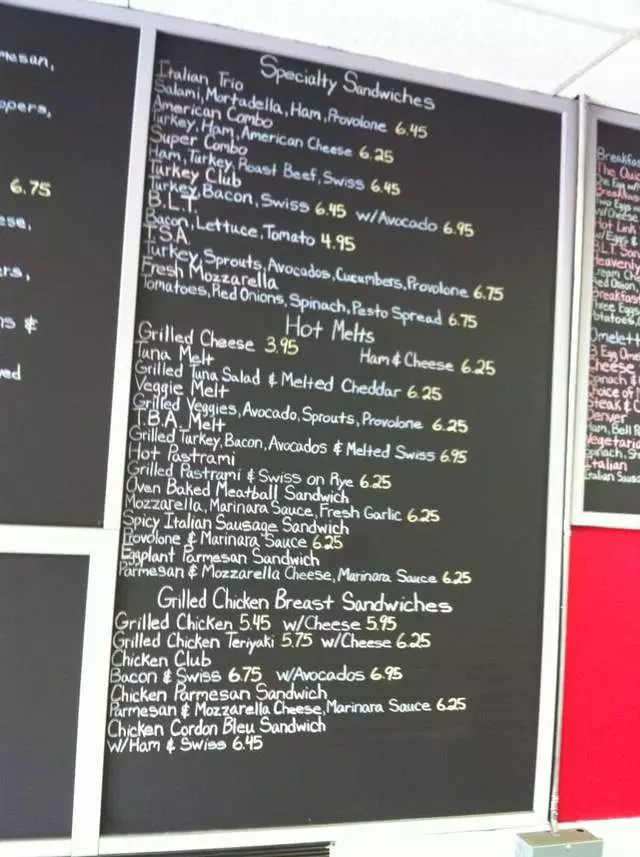 mesan,
6.75
&
Specialty Sandwiches
Italian Trio
Salami, Mortadella, Ham, Provolone 6.45
American Combo
Turkey, Ham, American Cheese 6.25
Super Combo
Ham, Turkey, Roast Beef, Swiss 6.45
Turkey Club
Turkey, Bacon, Swiss 6.45 w/Avocado 6.95
B.L.T.
Bacon, Lettuce, Tomato 4.95
T.S.A.
Turkey, Sprouts, Avocados, Cucumbers, Provolone 6.75
Fresh Mozzarella
Tomatoes, Red Onions, Spinach, Pesto Spread 6.75
Hot Melts
Grilled Cheese 3.95 Ham & Cheese 6.25
Tuna Melt
Grilled Tuna Salad & Melted Cheddar 6.25
Veggie Melt
Grilled Veggies, Avocado, Sprouts, Provolone 6.25
T.B.A. Melt
Grilled Turkey, Bacon, Avocados & Melted Swiss 6.95
Hot Pastrami
Grilled Pastrami & Swiss on Rye 6.25
Oven Baked Meatball Sandwich
Mozzarella, Marinara Sauce, Fresh Garlic 6.25
Spicy Italian Sausage Sandwich
Provolone & Marinara Sauce 6.25
Eggplant Parmesan Sandwich
Parmesan & Mozzarella Cheese, Marinara Sauce 6.25
Grilled Chicken Breast Sandwiches
Grilled Chicken 5.45 w/Cheese 5.95
Grilled Chicken Teriyaki 5.75 w/Cheese 6.25
Chicken Club
Bacon & Swiss 6.75 w/Avocados 6.95
Chicken Parmesan Sandwich
Parmesan & Mozzarella Cheese, Marinara Sauce 6.25
Chicken Cordon Bleu Sandwich
w/Ham & Swiss 6.45
Breakfas
Hot Link
Heavenly
Three Eggs
Omelett
Cheese
Choice of
Steak &
Denver
Ham, Bell P
Vegetaria
Spinach, S
Italian
Italian Saus